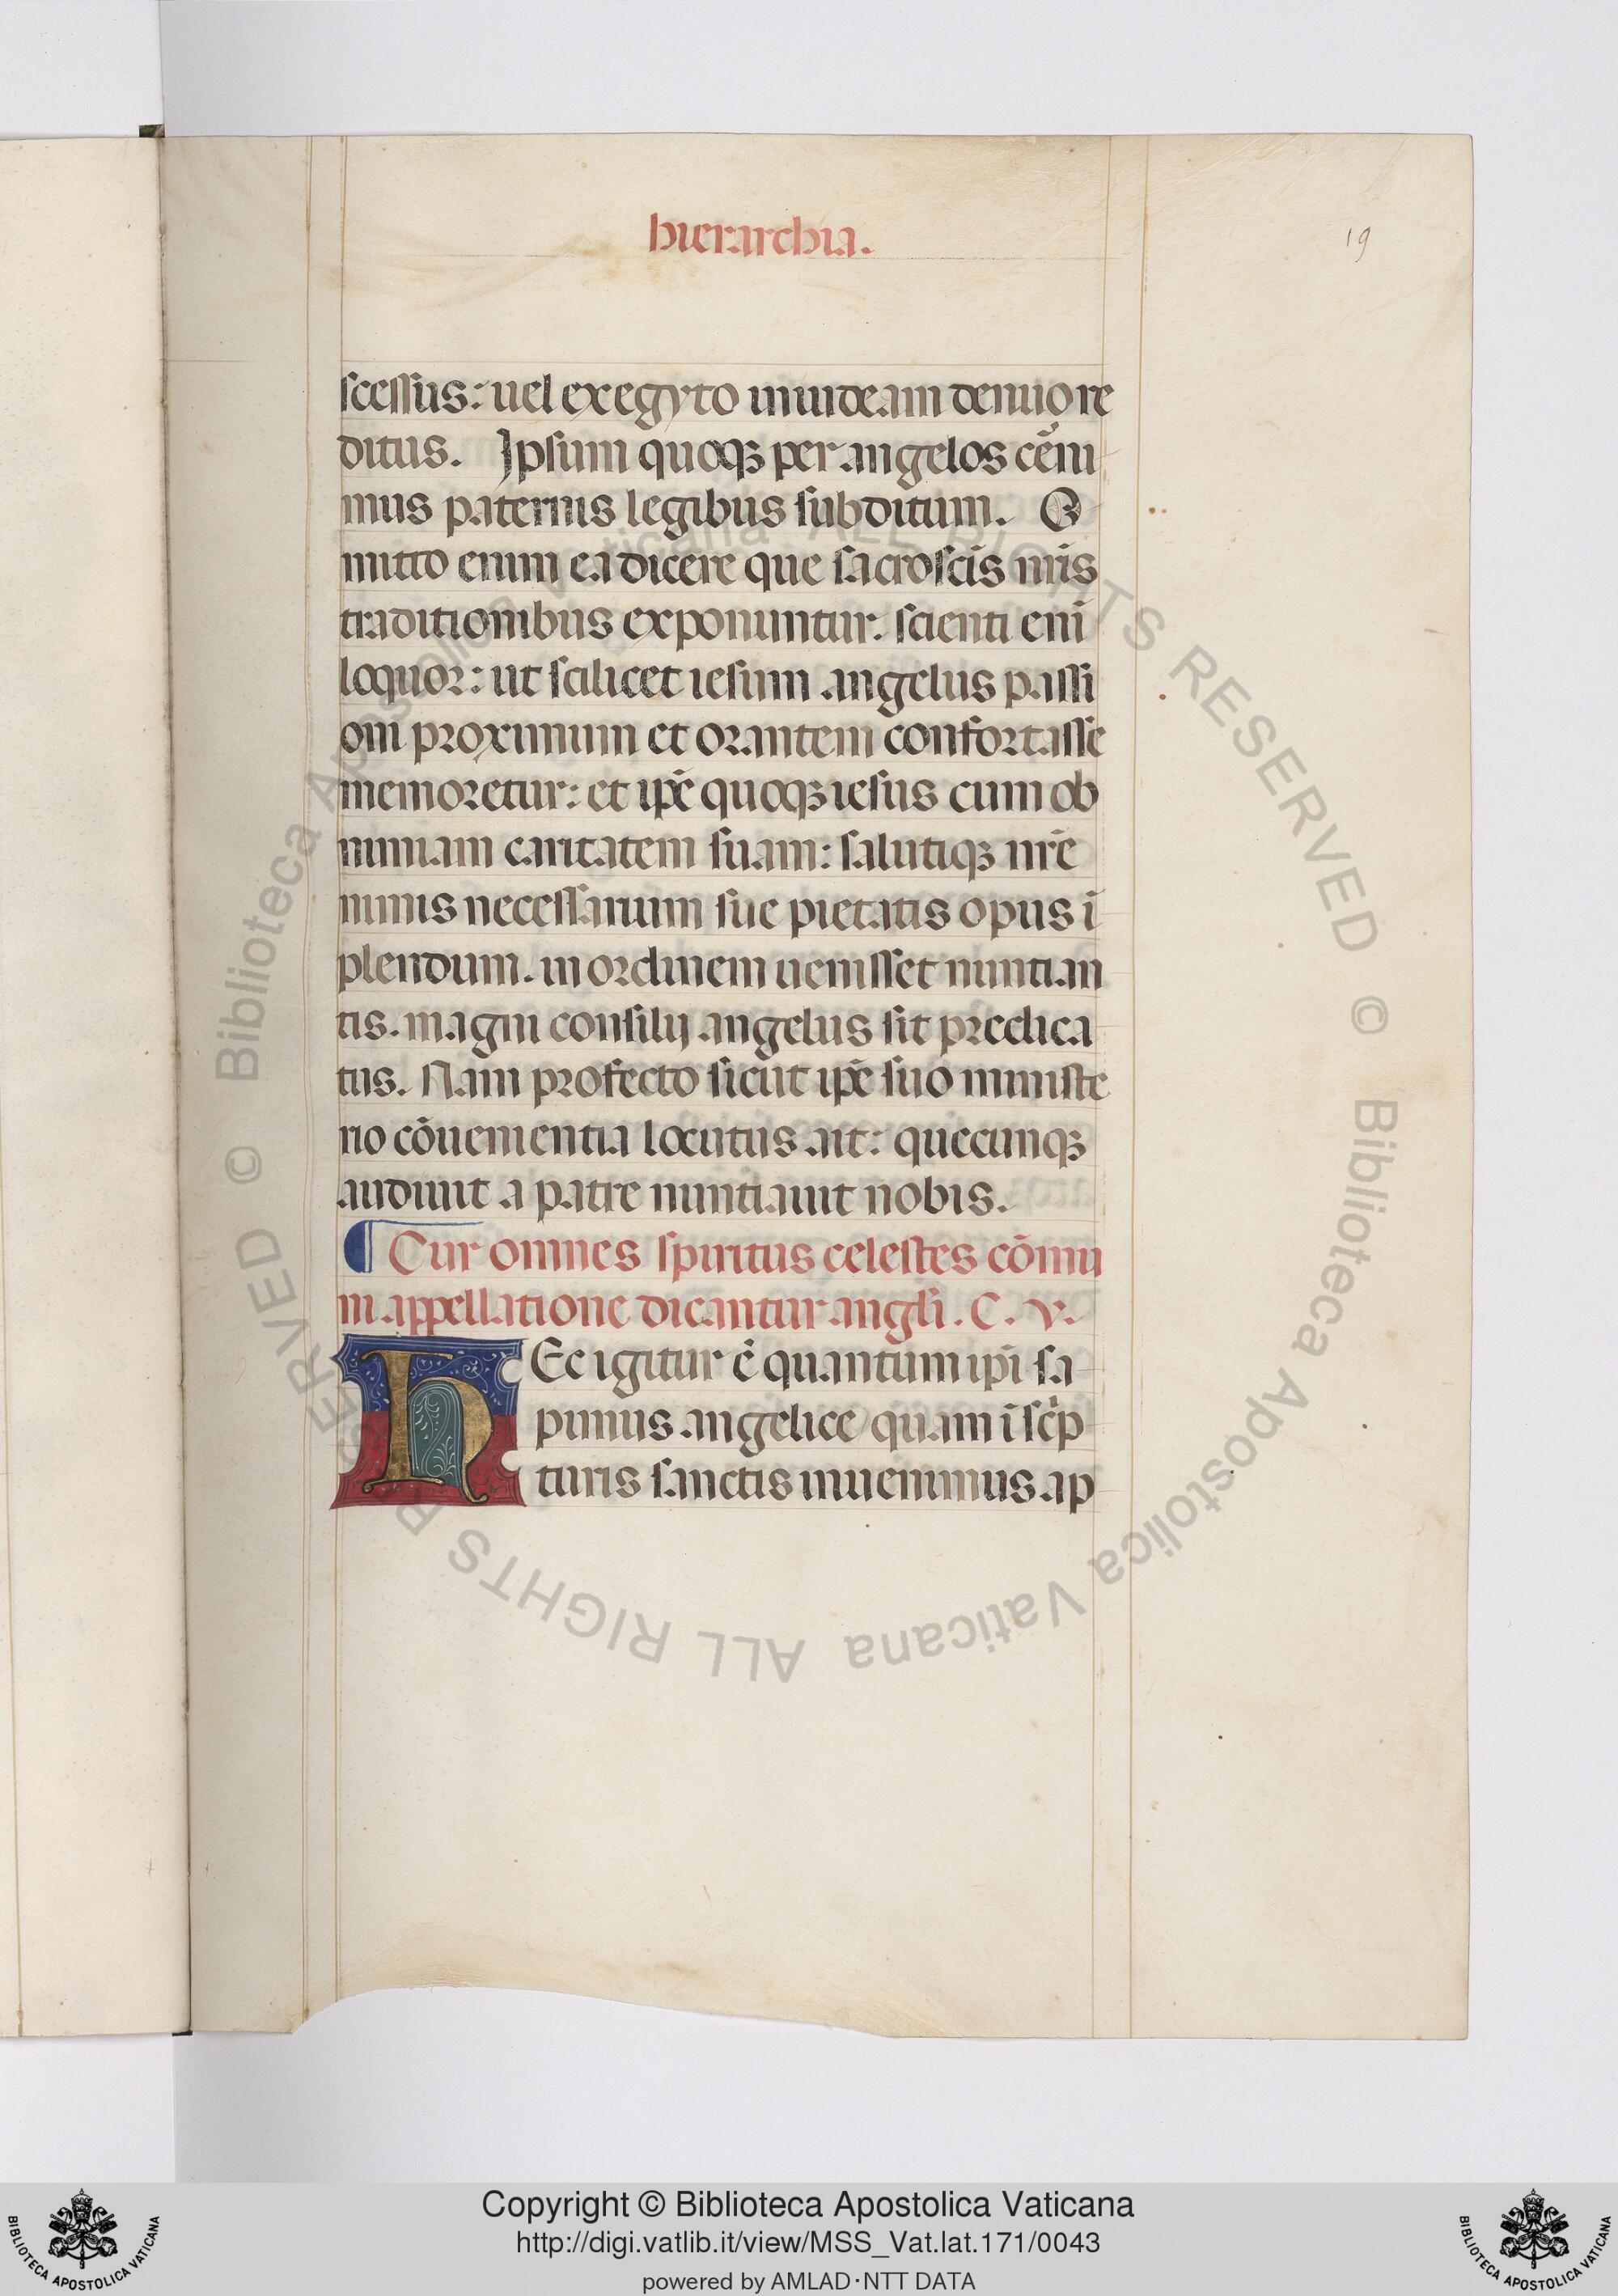 hierarchia.
19
scessus: uel ex egypto in iudeam denuo re
ditus. Ipsum quoqꝫ per angelos cẽni
mus paternis legibus subditum. O
mitto enim ea dicere que sacroscĩs nr̃is
traditionibus exponuntur. scienti enĩ
loquor: ut scilicet iesum angelus passi
oni proximum et orantem confortasse
memoretur: et ip̃e quoqꝫ iesus cum ob
nimiam caritatem suam: salutiqꝫ nr̃e
nimis necessarium sue pietatis opus ĩ
plendum. in ordinem uenisset nuntian
tis. magni consilij angelus sit predica
tus. Nam profecto sicut ip̃e suo ministe
rio cõuenientia locutus ait: quecunqꝫ
audiuit a patre nuntiauit nobis.
¶ Cur omnes spiritus celestes cõmu
ni appellatione dicantur angli. C. v.
HEc igitur ẽ quantum ip̃i sa
pimus angelice / quam ĩ sc̃rp
turis sanctis inuenimus ap
Copyright © Biblioteca Apostolica Vaticana
http://digi.vatlib.it/view/MSS_Vat.lat.171/0043
powered by AMLAD·NTT DATA
BIBLIOTECA APOSTOLICA VATICANA
BIBLIOTECA APOSTOLICA VATICANA
© Biblioteca Apostolica Vaticana ALL RIGHTS RESERVED
© Biblioteca Apostolica Vaticana ALL RIGHTS RESERVED